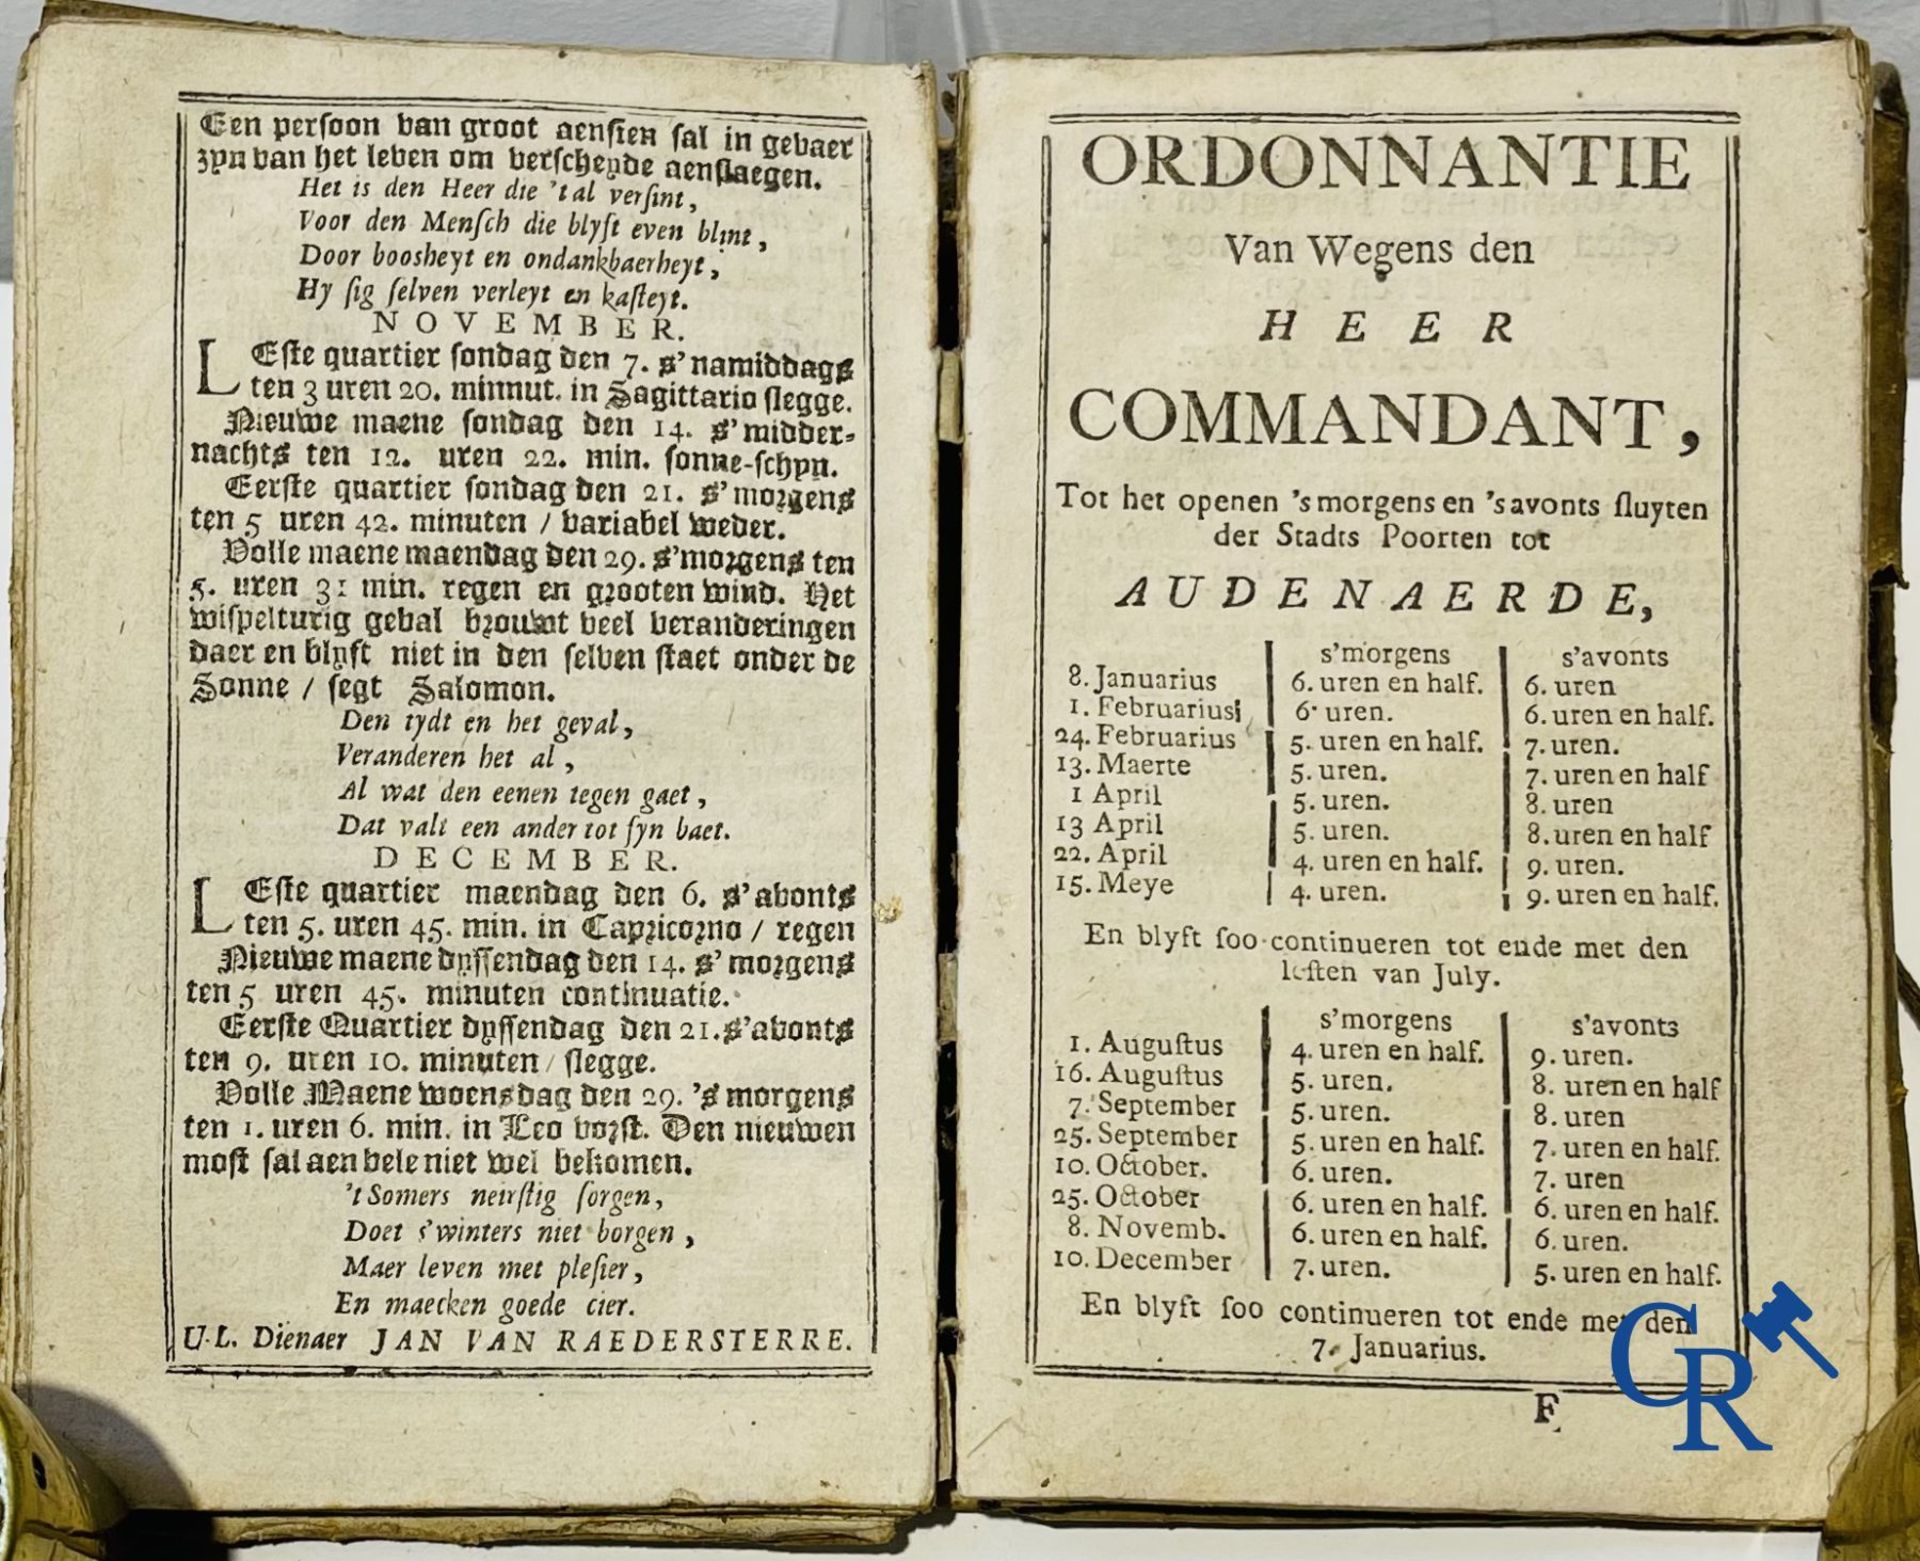 Een persoon van groot aensien sal in gevaer
zyn van het leven om verscheyde aenslaegen.
Het is den Heer die 't al versint,
Voor den Mensch die blyft even blint,
Door boosheyt en ondankbaerheyt,
Hy sig selven verleyt en kasteyt.
NOVEMBER.
LEste quartier sondag den 7. s'namiddags
ten 3 uren 20. minnut. in Sagittario slegge.
Nieuwe maene sondag den 14. s'midder-
nachts ten 12. uren 22. min. sonne-schyn.
Eerste quartier sondag den 21. s'morgens
ten 5 uren 42. minuten / variabel weder.
Volle maene maendag den 29. s'morgens ten
5. uren 31 min. regen en grooten wind. Het
wispelturig geval brouwt veel veranderingen
daer en blyft niet in den selven staet onder de
Sonne / segt Salomon.
Den tydt en het geval,
Veranderen het al,
Al wat den eenen tegen gaet,
Dat valt een ander tot syn baet.
DECEMBER.
LEste quartier maendag den 6. s'avonts
ten 5. uren 45. min. in Capricorno / regen
Nieuwe maene dyssendag den 14. s'morgens
ten 5 uren 45. minuten continuatie.
Eerste Quartier dyssendag den 21. s'avonts
ten 9. uren 10. minuten / slegge.
Volle Maene woensdag den 29. 's morgens
ten 1. uren 6. min. in Leo vorst. Den nieuwen
most sal aen vele niet wel bekomen.
't Somers neirstig sorgen,
Doet s'winters niet borgen,
Maer leven met plesier,
En maecken goede cier.
U.L. Dienaer JAN VAN RAEDERSTERRE.
ORDONNANTIE
Van Wegens den
HEER
COMMANDANT,
Tot het openen 's morgens en 's avonts sluyten
der Stadts Poorten tot
AUDENAERDE,
s'morgens s'avonts
8. Januarius 6. uren en half. 6. uren
1. Februarius 6. uren. 6. uren en half.
24. Februarius 5. uren en half. 7. uren.
13. Maerte 5. uren. 7. uren en half
1 April 5. uren. 8. uren
13 April 5. uren. 8. uren en half
22. April 4. uren en half. 9. uren.
15. Meye 4. uren. 9. uren en half.
En blyft soo continueren tot ende met den
lesten van July.
s'morgens s'avonts
1. Augustus 4. uren en half. 9. uren.
16. Augustus 5. uren. 8. uren en half
7. September 5. uren. 8. uren
25. September 5. uren en half. 7. uren en half.
10. October. 6. uren. 7. uren
25. October 6. uren en half. 6. uren en half.
8. Novemb. 6. uren en half. 6. uren.
10. December 7. uren. 5. uren en half.
En blyft soo continueren tot ende met den
7. Januarius.
F
CR